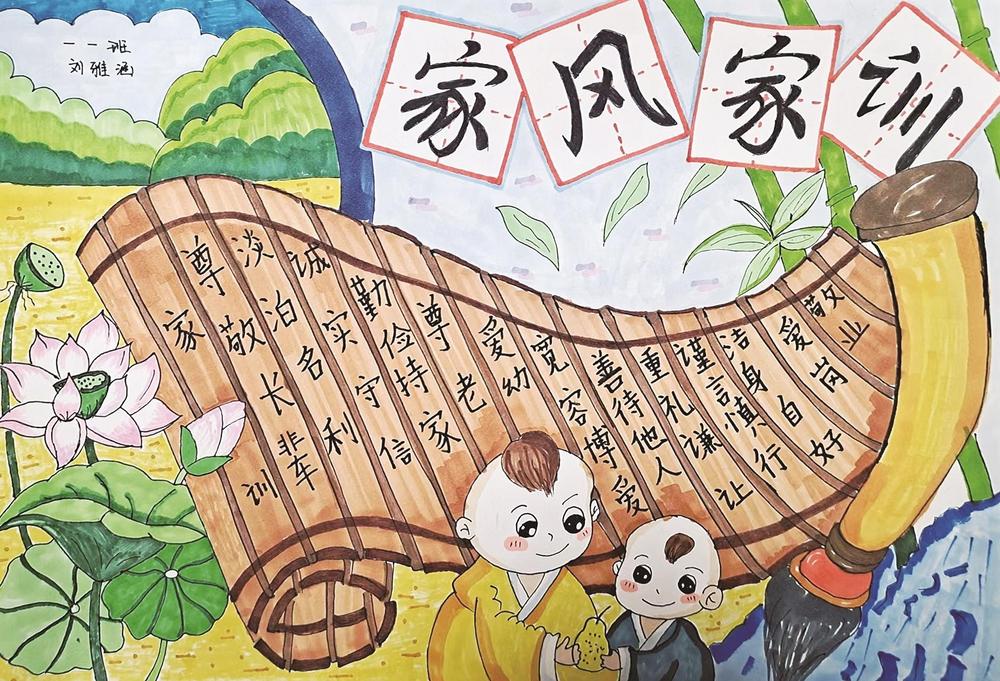 一一班
刘雅涵
家风家训
家训
尊敬长辈
淡泊名利
诚实守信
勤俭持家
尊老
爱幼
宽容博爱
善待他人
重礼谦让
谨言慎行
洁身自好
爱岗
敬业